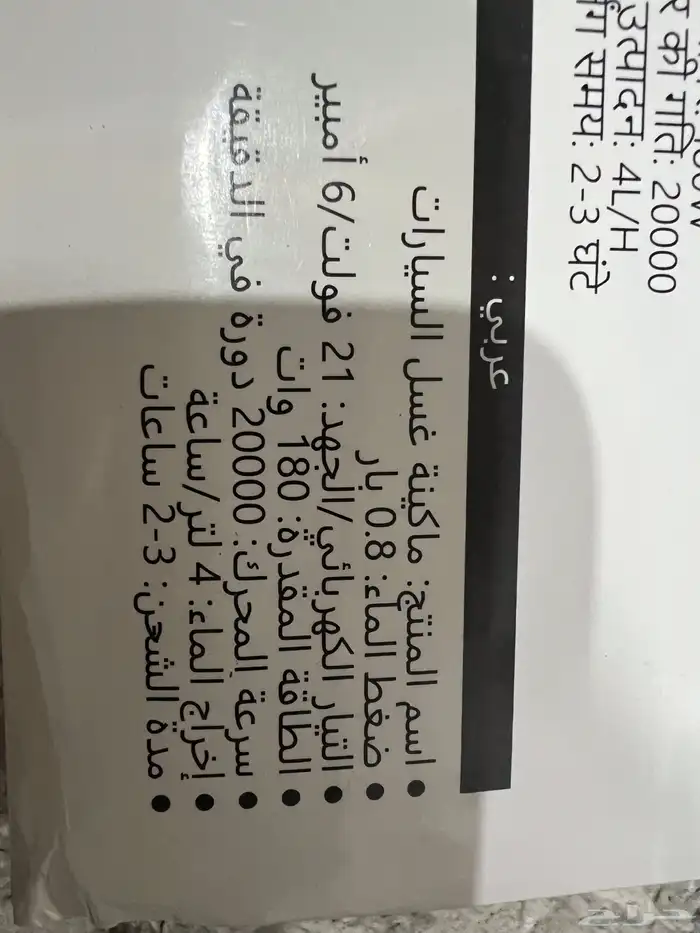 20000
उत्पादन: 4L/H
समय: 2-3 घंटे
عربي:
• اسم المنتج: ماكينة غسل السيارات
• ضغط الماء: 0.8 بار
• التيار الكهربائي/الجهد: 21 فولت/6 أمبير
• الطاقة المقدرة: 180 وات
• سرعة المحرك: 20000 دورة في الدقيقة
• إخراج الماء: 4 لتر/ساعة
• مدة الشحن: 3-2 ساعات
حراج